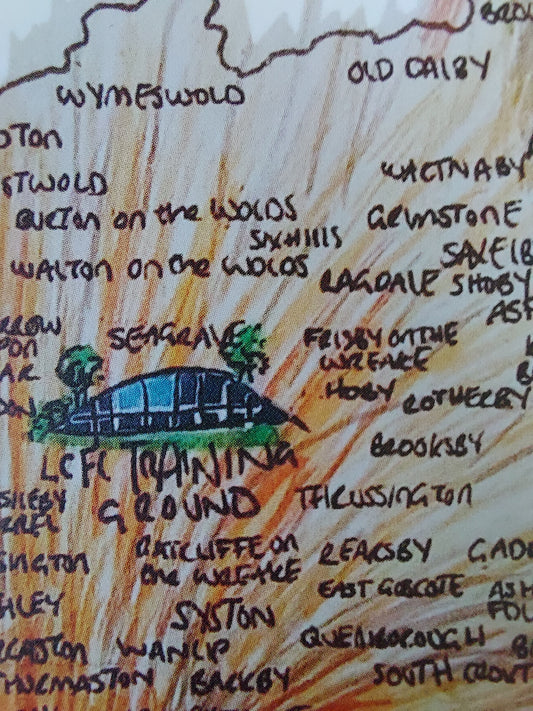 BROU
OLD DALBY
WYMESWOLD
OTON
STWOLD
WARTNABY
BURTON on the WOLDS
GRIMSTONE
SIX HILLS
SAXELB
WALTON on the WOLDS
RAGDALE SHOBY
ASF
RROW
SEAGRAVE
FRISBY ON THE
WREAKE
PON
AR
HOBY
ROTHERBY
BROOKSBY
LCFC TRAINING
GROUND
THRUSSINGTON
RATCLIFFE on
the WREAKE
REARSBY
GADD
SINGTON
EAST GOSCOTE
ASH
FOL
HLEY
SYSTON
QUENIBOROUGH
WANLIP
SOUTH CROXT
THURMASTON
BARKBY